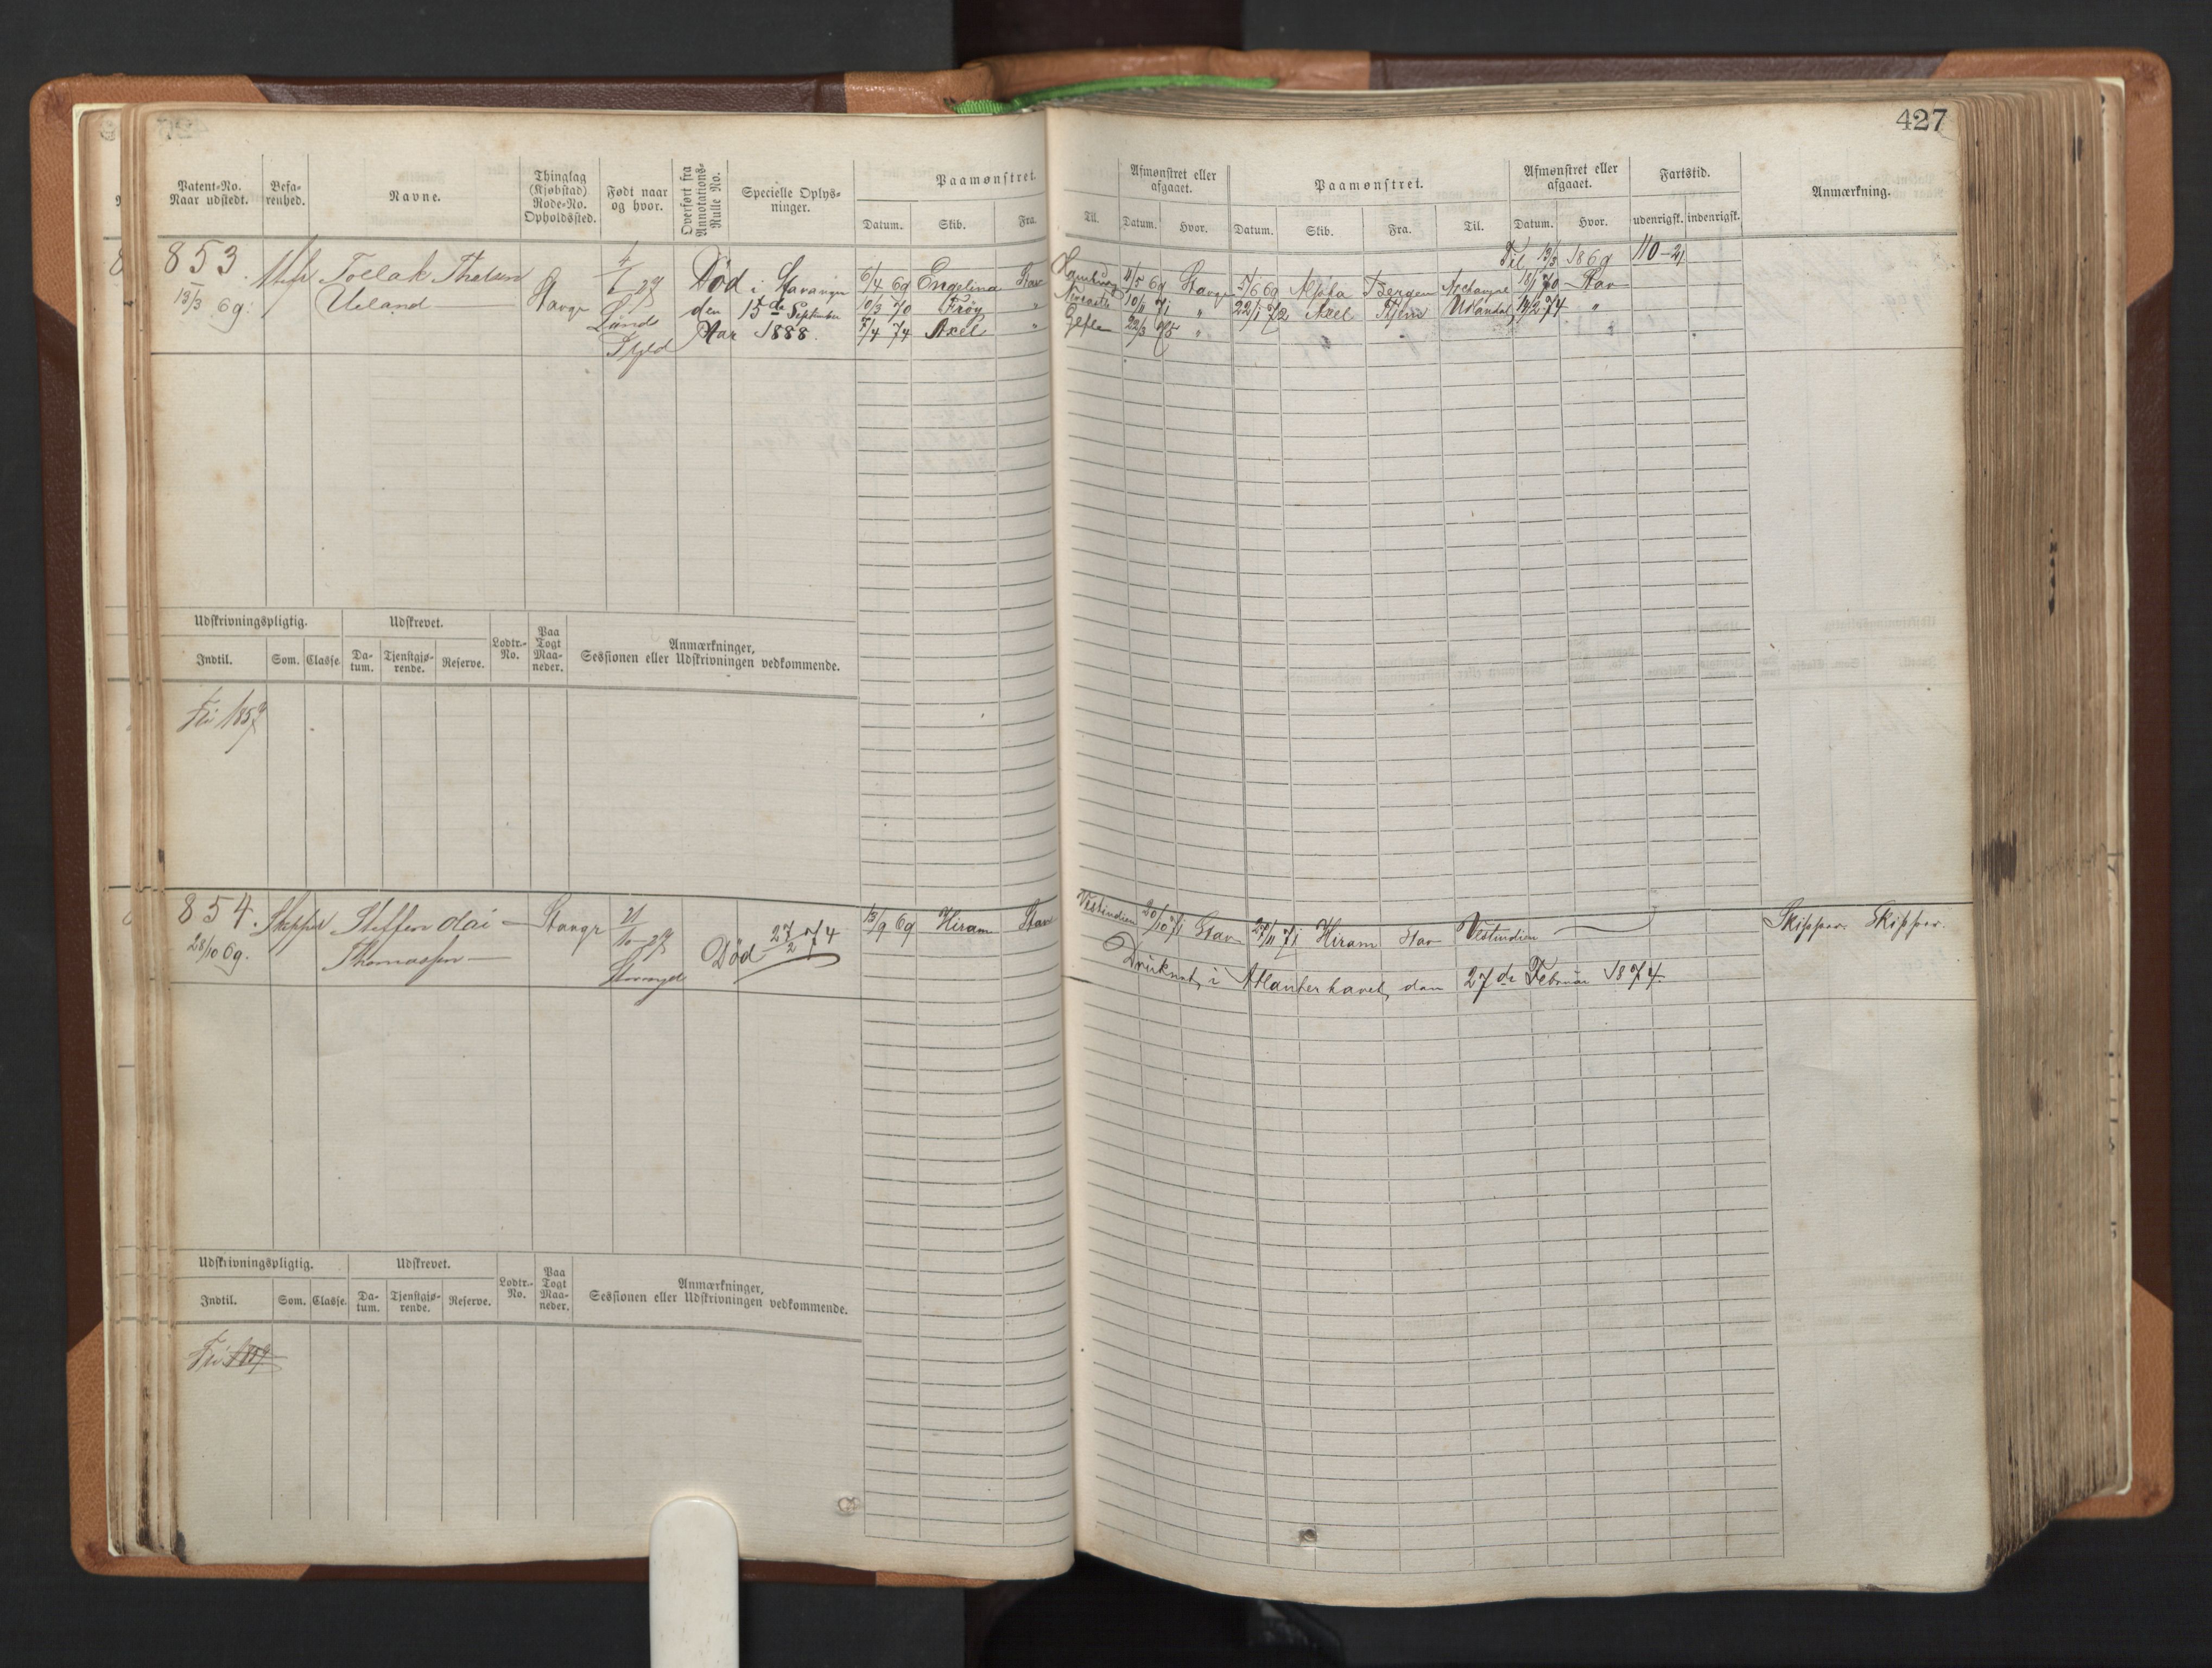 427
Patent-No. Naar udstedt.
Befarenhed.
Navne.
Thinglag (Kjøbstad) Rode-No. Opholdssted.
Født naar og hvor.
Overført fra Annotations-Rulle No.
Specielle Oplysninger.
Paamønstret.
Datum. Skib. Fra. Til.
Afmønstret eller afgaaet.
Datum. Hvor.
Paamønstret.
Datum. Skib. Fra. Til.
Afmønstret eller afgaaet.
Datum. Hvor.
Fartstid.
udenrigsk. indenrigsk.
Anmærkning.
853.
13/3 69.
Tollak
Ueland
Stavgr
Død i Stavanger
den 15de September
Aar 1888.
Til 13/3 1869 110-21
6/4 69 Engelina Stav Hamburg 11/5 69 Stavgr 5/6 69 Bergen 18/1 70 Stav
10/3 70 Frøy " 10/11 71 " 22/1 72 Axel 14/2 74 "
7/4 74 Axel " Gefle 22/3 75 "
Udskrivningspligtig.
Udskrevet.
Indtil. Som. Classe. Datum. Tjenstgjørende. Reserve. Lodtr.-No. Paa Togt Maaneder.
Anmærkninger, Sessionen eller Udskrivningen vedkommende.
Fri 1857
854.
28/10 69.
Steffen
Thomassen
Stavgr
21/10-27
Død 27/2 74
13/9 69 Hiram Stav Vestindien 20/10 71 Stav 27/11 71 Hiram Stav Vestindien
Skipper. Skipper.
Druknet i Atlanterhavet den 27de Februar 1874.
Udskrivningspligtig.
Udskrevet.
Indtil. Som. Classe. Datum. Tjenstgjørende. Reserve. Lodtr.-No. Paa Togt Maaneder.
Anmærkninger, Sessionen eller Udskrivningen vedkommende.
Fri